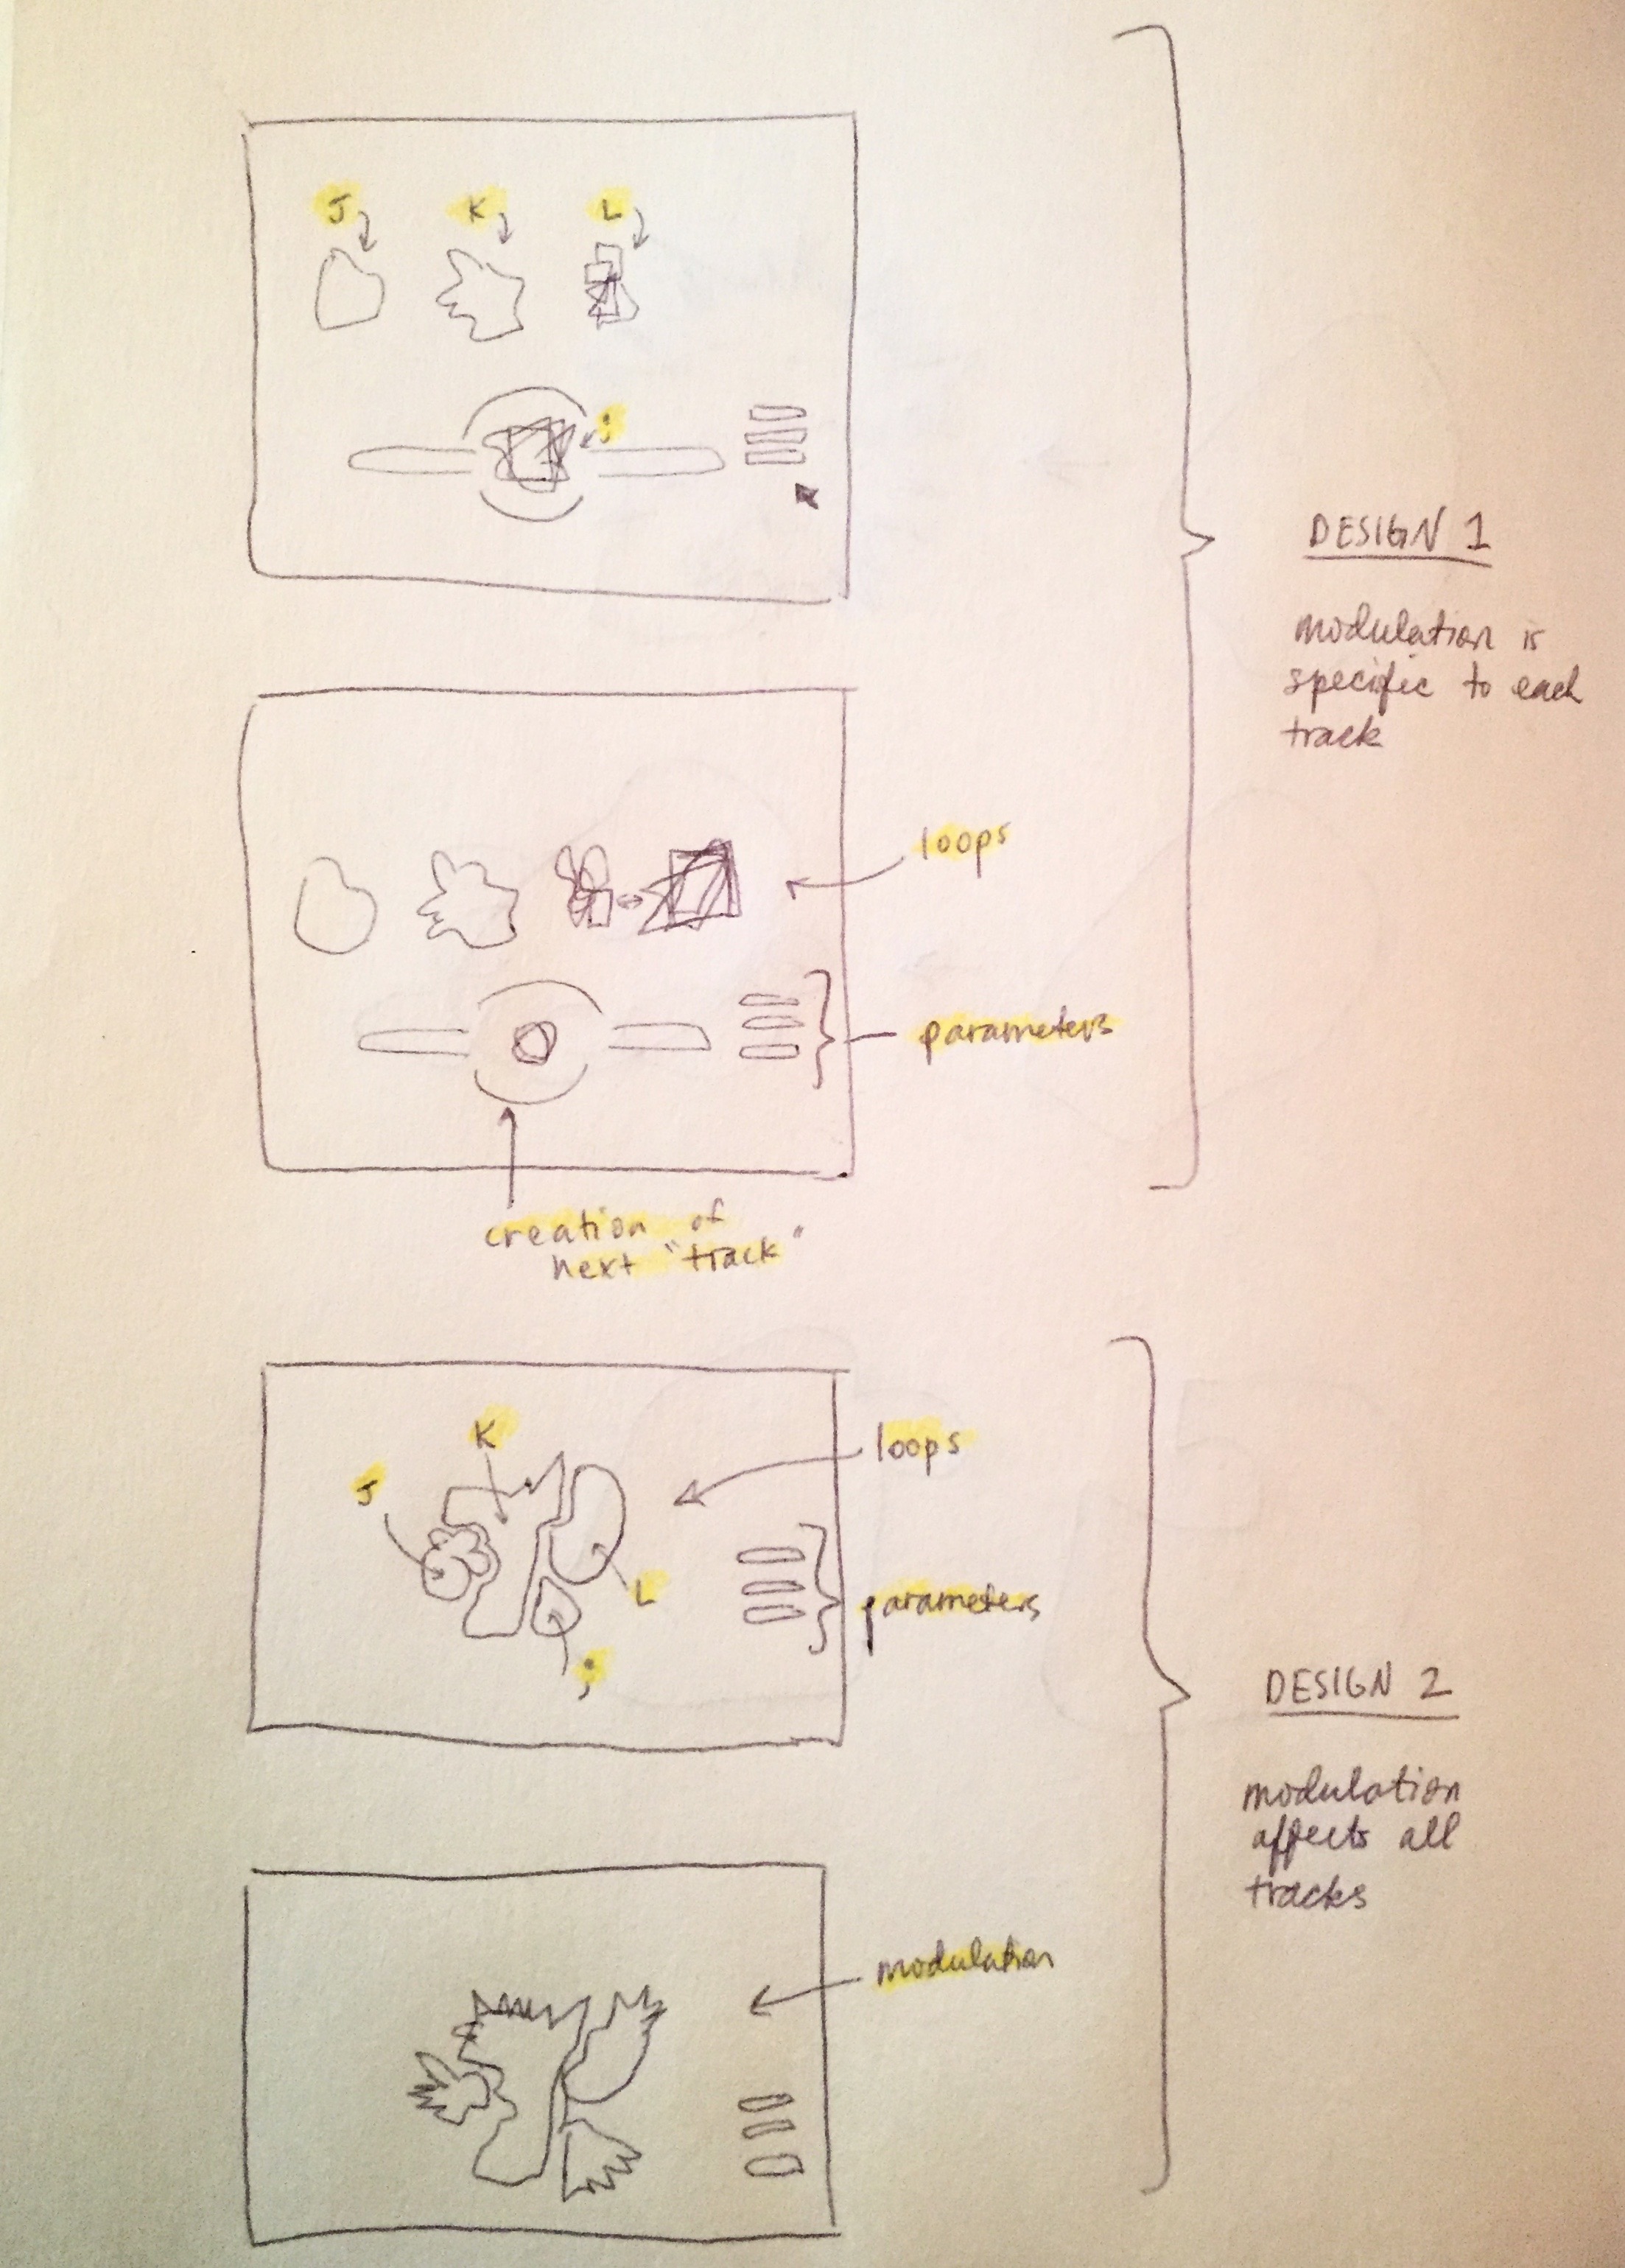 J K L
;
DESIGN 1
modulation is
specific to each
track
loops
parameters
creation of
next "track"
K
J
loops
L
parameters
;
DESIGN 2
modulation
affects all
tracks
modulation